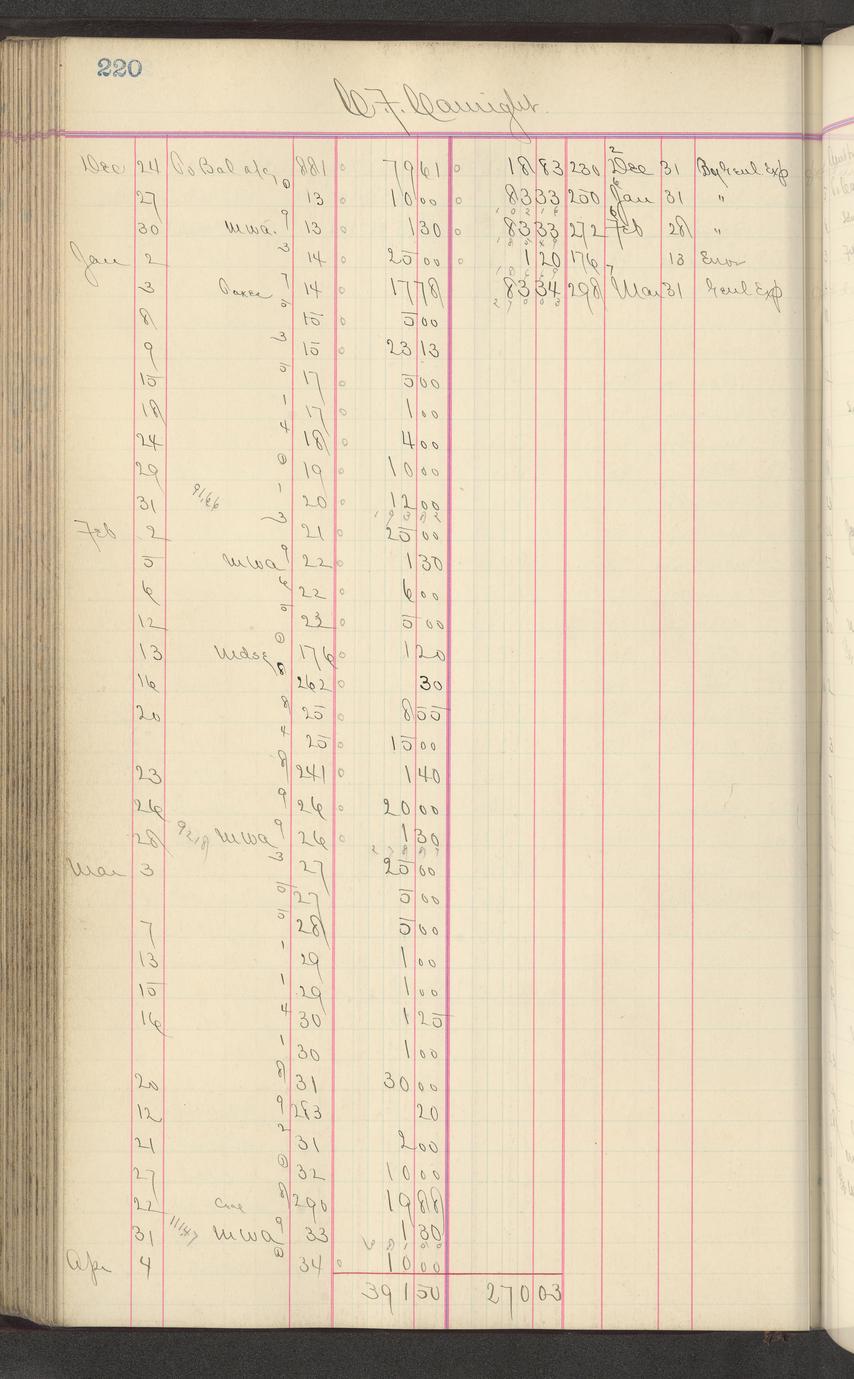 220
W.F. Wainright.
Dec 24 To Bal a/c 881 79 61 18 83 230 Dec 31 By Genl Exp
27 13 10 00 83 33 250 Jan 31 "
30 M W A. 13 1 30 83 33 272 Feb 28 "
Jan 2 14 25 00 1 20 176 13 Error
3 14 17 78 83 34 298 Mar 31 Genl Exp
8 15 5 00
9 15 23 13
15 17 5 00
18 17 1 00
24 18 4 00
29 19 10 00
31 20 12 00
Feb 2 21 25 00
5 M W A 22 1 30
6 22 6 00
12 23 5 00
13 Mdse 176 1 20
16 262 30
20 25 8 55
25 15 00
23 241 1 40
26 26 20 00
28 M W A 26 1 30
Mar 3 27 25 00
27 5 00
7 28 5 00
13 29 1 00
15 29 1 00
16 30 1 25
30 1 00
20 31 30 00
12 283 20
21 31 2 00
27 32 10 00
22 290 19 88
31 M W A 33 1 30
Apr 4 34 10 00
391 50 270 03